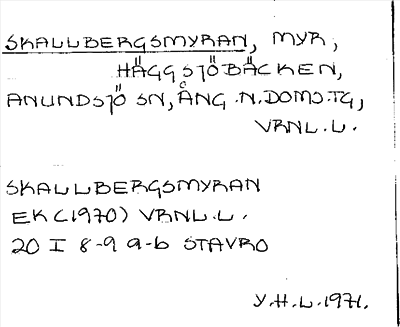 SKALLBERGSMYRAN, MYR,
HÄGGSJÖBÄCKEN,
ANUNDSJÖ SN, ÅNG.N.DOMS.TG,
VRNL.L.
SKALLBERGSMYRAN
EK (1970) VRNL.L.
20 I 8-9 a-b STAVRO
Y.H.L.1971.